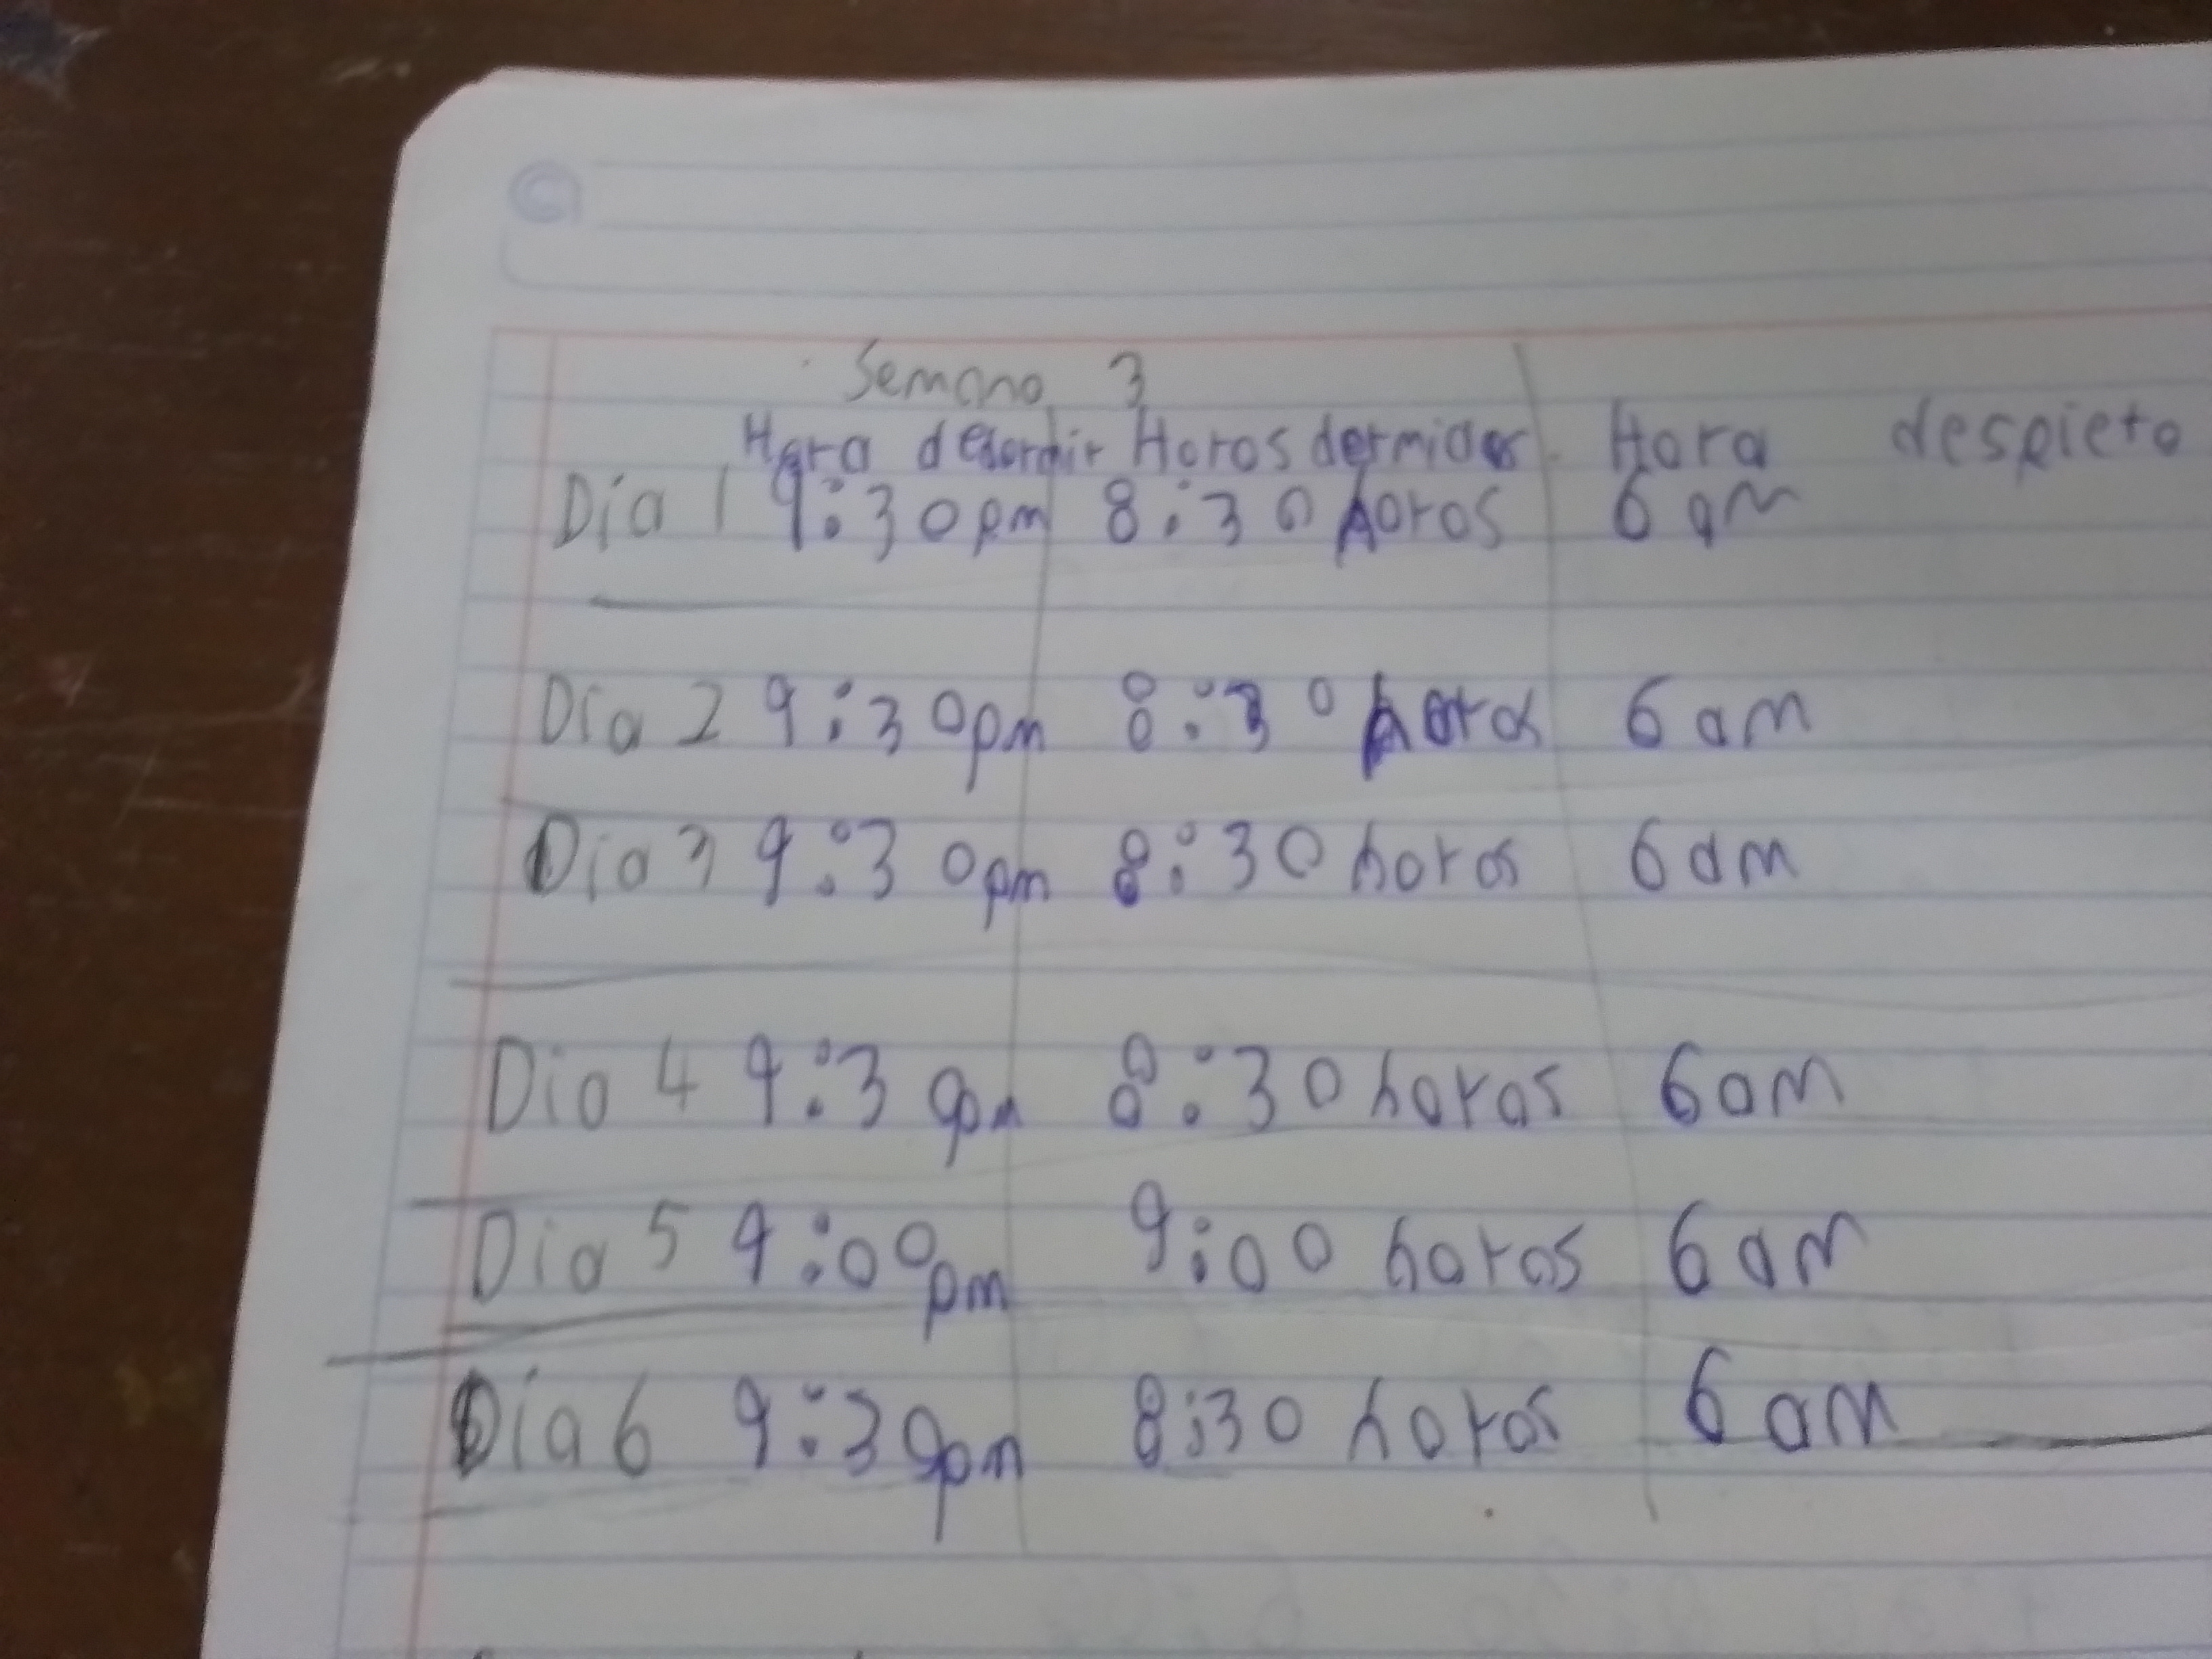 Semana 3
Hora de dormir Horas dormidas Hora despieta
Día 1 9:30pm 8:30 horas 6 am
Día 2 9:30pm 8:30 horas 6 am
Día 3 9:30pm 8:30 horas 6 am
Día 4 9:30pm 8:30 horas 6 am
Día 5 9:00pm 9:00 horas 6 am
Día 6 9:30pm 8:30 horas 6 am